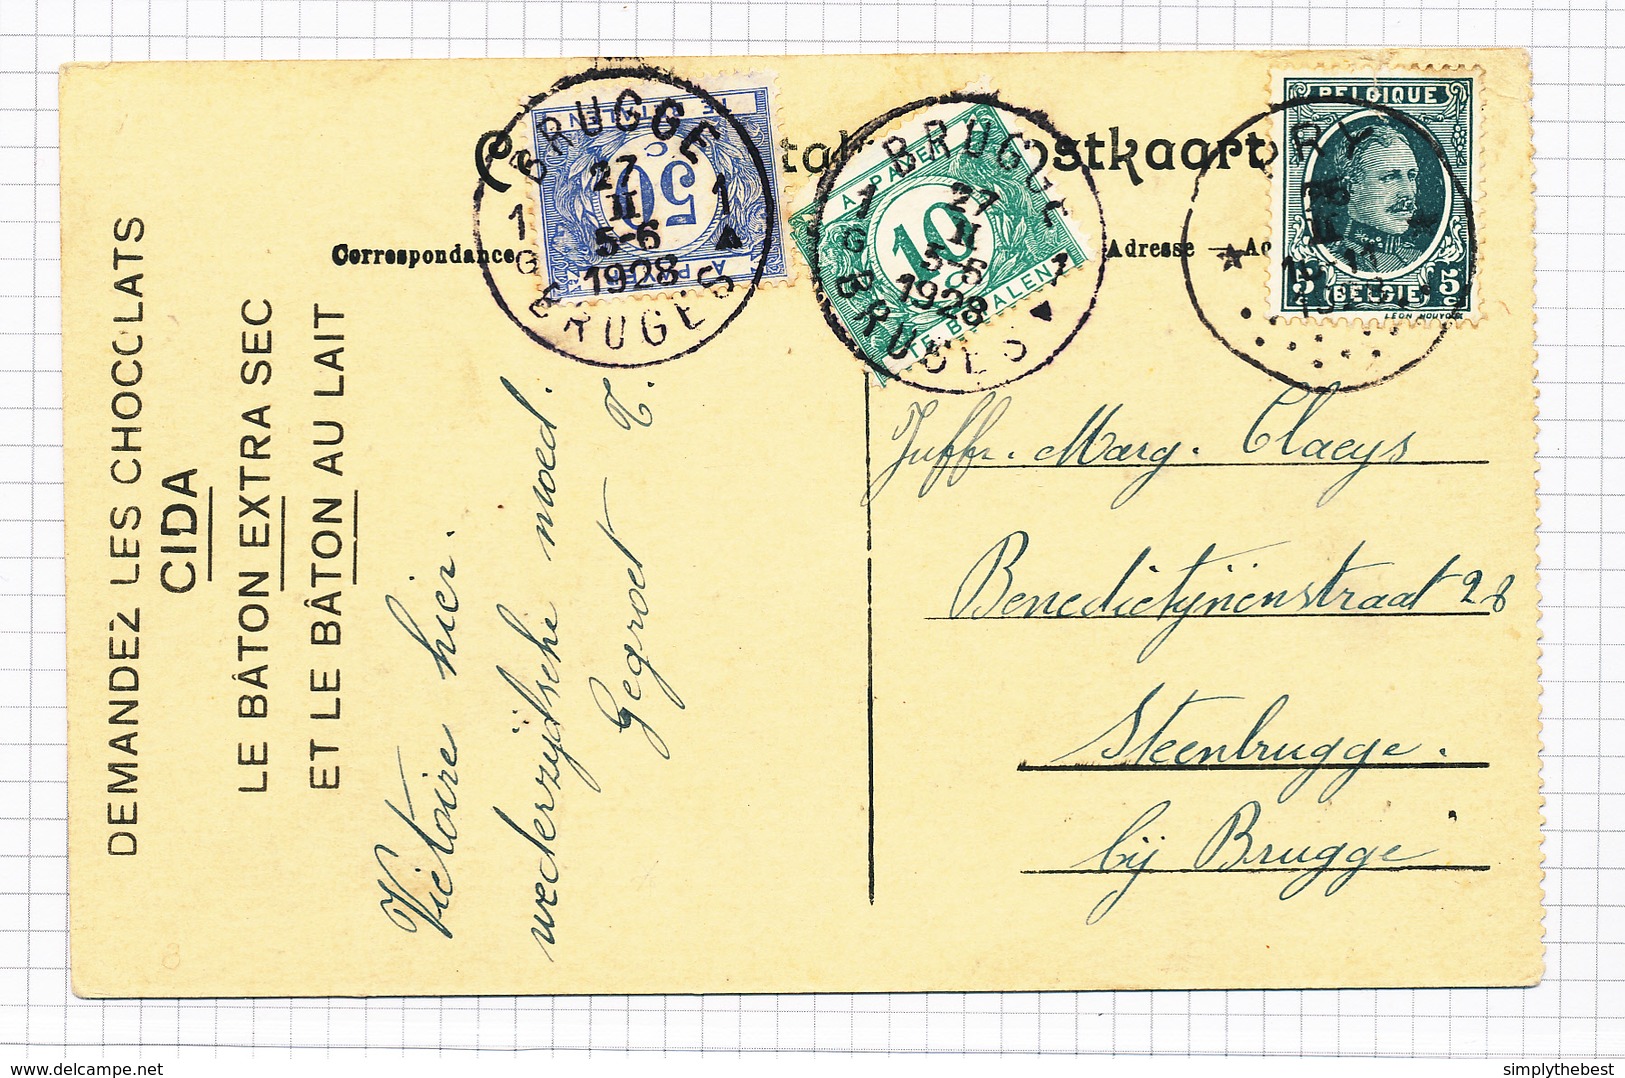 DEMANDEZ LES CHOCOLATS
CIDA
LE BÂTON EXTRA SEC
ET LE BÂTON AU LAIT
Postkaart
Correspondance
Adresse
BRUGGE
27
II
5-6
1928
1 1
G
BRUGES
50
c
TE BETALEN
A PAYER
BRUGGE
27
II
5-6
1928
1 1
G
BRUGES
A PAYER
10
TE BETALEN
BELGIQUE
5 5
c
BELGIË
Victoire hier.
wederzijdsche moed.
Gegroet T.
Juffr. Marg. Claeys
Benedictijnenstraat 28
Steenbrugge.
bij Brugge
8
delcampe.net
simplythebest